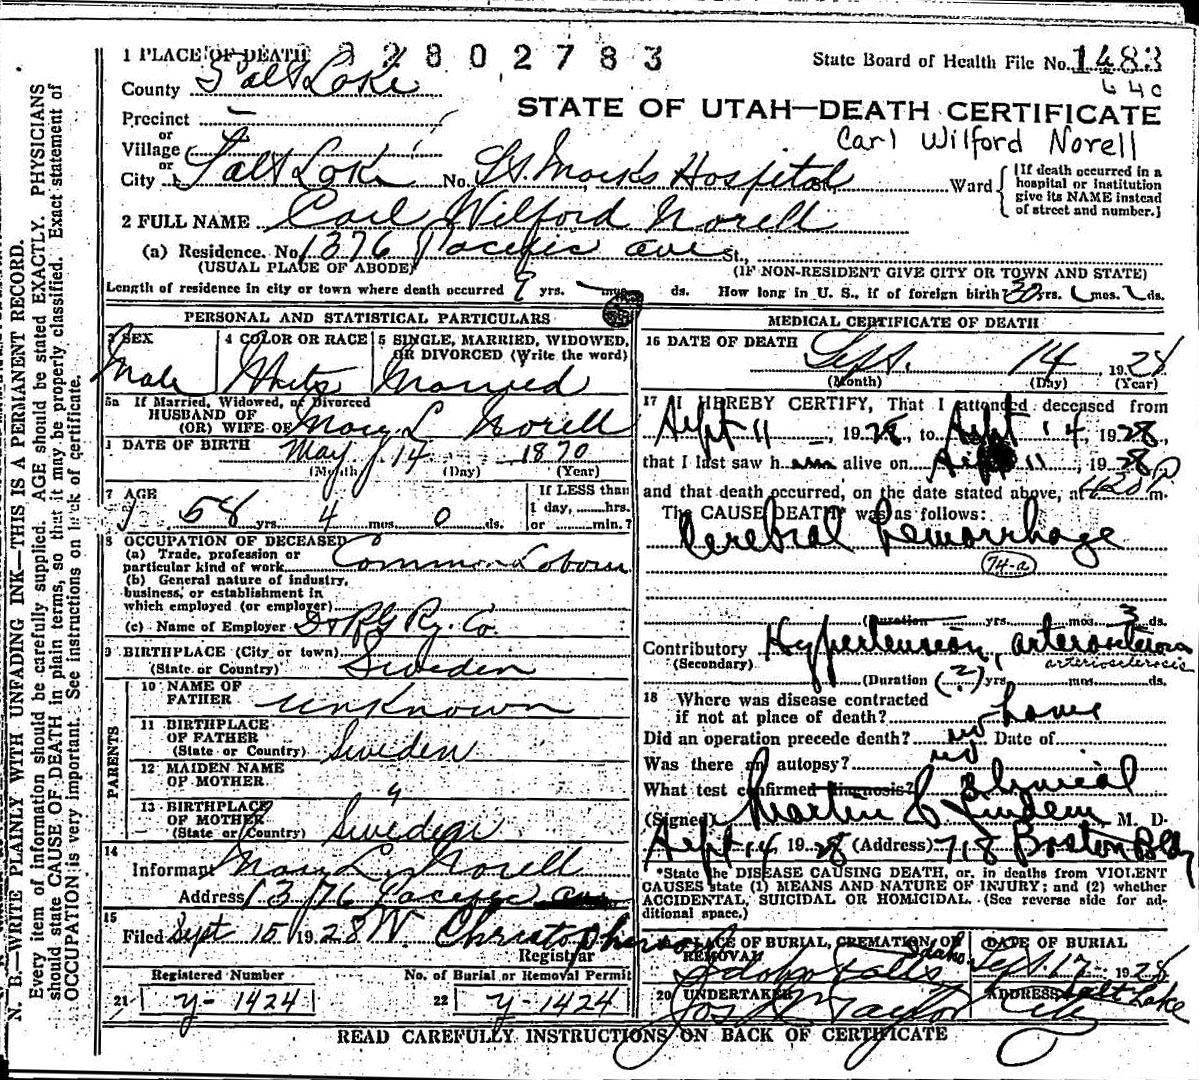 1 PLACE OF DEATH 82802783
State Board of Health File No. 1483
640
County Salt Lake
STATE OF UTAH—DEATH CERTIFICATE
Precinct —
Carl Wilford Norell
or
Village
or
City Salt Lake No. St. Marks Hospital St., Ward
[If death occurred in a
hospital or institution
give its NAME instead
of street and number.]
2 FULL NAME Carl Wilford Norell
(a) Residence. No. 1376 Pacific ave St.,
(USUAL PLACE OF ABODE) (IF NON-RESIDENT GIVE CITY OR TOWN AND STATE)
Length of residence in city or town where death occurred 9 yrs. — mos. ds. How long in U. S., if of foreign birth? 30 yrs. mos. ds.
PERSONAL AND STATISTICAL PARTICULARS
3 SEX
Male
4 COLOR OR RACE
White
5 SINGLE, MARRIED, WIDOWED,
OR DIVORCED (Write the word)
Married
5a If Married, Widowed, or Divorced
HUSBAND OF
(OR) WIFE OF Mary L Norell
DATE OF BIRTH May 14 1870
(Month) (Day) (Year)
7 AGE
58 yrs. 4 mos. 0 ds.
If LESS than
1 day, hrs.
or min.?
8 OCCUPATION OF DECEASED
(a) Trade, profession or
particular kind of work Common Laborer
(b) General nature of industry,
business, or establishment in
which employed (or employer)
(c) Name of Employer D & R G Ry. Co.
9 BIRTHPLACE (City or town)
(State or Country) Sweden
PARENTS
10 NAME OF
FATHER unknown
11 BIRTHPLACE
OF FATHER
(State or Country) Sweden
12 MAIDEN NAME
OF MOTHER "
13 BIRTHPLACE
OF MOTHER
(State or Country) Sweden
14
Informant Mary L. Norell
Address 1376 Pacific ave
15
Filed Sept 15 1928 W. Christopherson
Registrar
Registered Number
21 y-1424
No. of Burial or Removal Permit
22 y-1424
MEDICAL CERTIFICATE OF DEATH
16 DATE OF DEATH
Sept. 14 1928
(Month) (Day) (Year)
17 I HEREBY CERTIFY, That I attended deceased from
Sept 11, 1928, to Sept 14, 1928,
that I last saw him alive on Sept 11, 1928
and that death occurred, on the date stated above, at 420 P m.
The CAUSE DEATH was as follows:
Cerebral Hemorrhage
74-a
(Duration yrs. mos. 3 ds.
Contributory Hypertension, arteriosclerosis
(Secondary) arteriosclerosis
(Duration (?) yrs. mos. ds.
18 Where was disease contracted
if not at place of death? home
Did an operation precede death? no Date of
Was there an autopsy? no
What test confirmed diagnosis? Clinical
(Signed) Martin C Lindem, M. D.
Sept 14 1928 (Address) 718 Boston Bldg
*State the DISEASE CAUSING DEATH, or, in deaths from VIOLENT
CAUSES state (1) MEANS AND NATURE OF INJURY; and (2) whether
ACCIDENTAL, SUICIDAL OR HOMICIDAL. (See reverse side for ad-
ditional space.)
PLACE OF BURIAL, CREMATION, OR
REMOVAL
Idaho Falls Idaho
DATE OF BURIAL
Sept 17 1928
20 UNDERTAKER
Jos Taylor
ADDRESS
Salt Lake City
READ CAREFULLY INSTRUCTIONS ON BACK OF CERTIFICATE
N. B.—WRITE PLAINLY WITH UNFADING INK—THIS IS A PERMANENT RECORD.
Every item of information should be carefully supplied. AGE should be stated EXACTLY. PHYSICIANS
should state CAUSE OF DEATH in plain terms, so that it may be properly classified. Exact statement of
OCCUPATION is very important. See instructions on back of certificate.